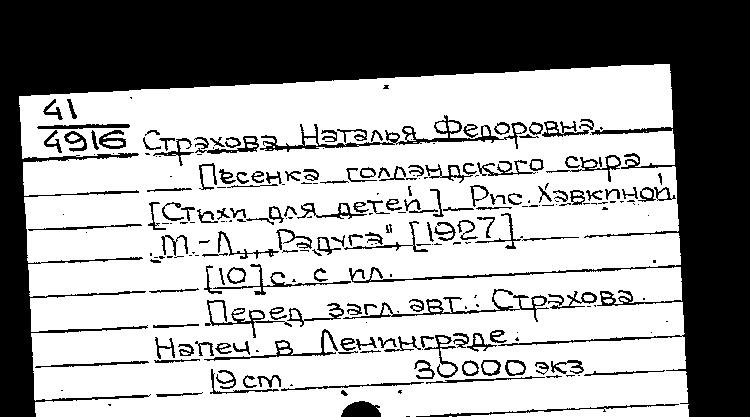 41
4916 Страхова, Наталья Федоровна.
Песенка голландского сыра.
[Стихи для детей]. Рис. Хавкиной.
М.-Л., "Радуга", [1927].
[10] с. с ил.
Перед загл. авт.: Страхова.
Напеч. в Ленинграде.
19 cm. 30000 экз.